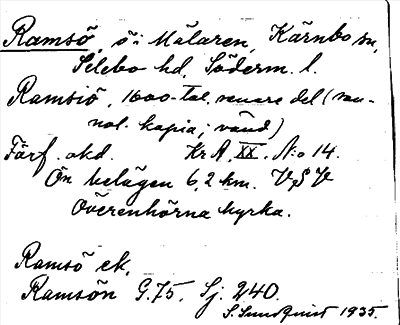 Ramsö, ö i Mälaren, Kärnbo sn,
Selebo hd, Söderm. l.
Ramsiö, 1600-tal. senare del (
kopia; vänd)
Förf. okd. Kr A, XX. N:o 14.
Ön belägen 6,2 km. V § V
Överenhörna kyrka.
Ramsö ek.
Ramsön G. 75. Sj. 240.
S. Sundquist 1935.